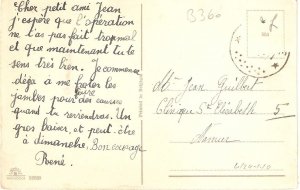 Cher petit ami Jean
j'espère que l'opération
ne t'as pas fait trop mal
et que maintenant tu te
sens très bien. Je commence
déja a me froter les
jambes pour des courses
faire
quand tu reviendras. Un
gros baiser, et peut. être
à dimanche, Bon courage
René.
B360
Mr Jean Guilbert
Clinique Ste Elisabeth 5
Namur